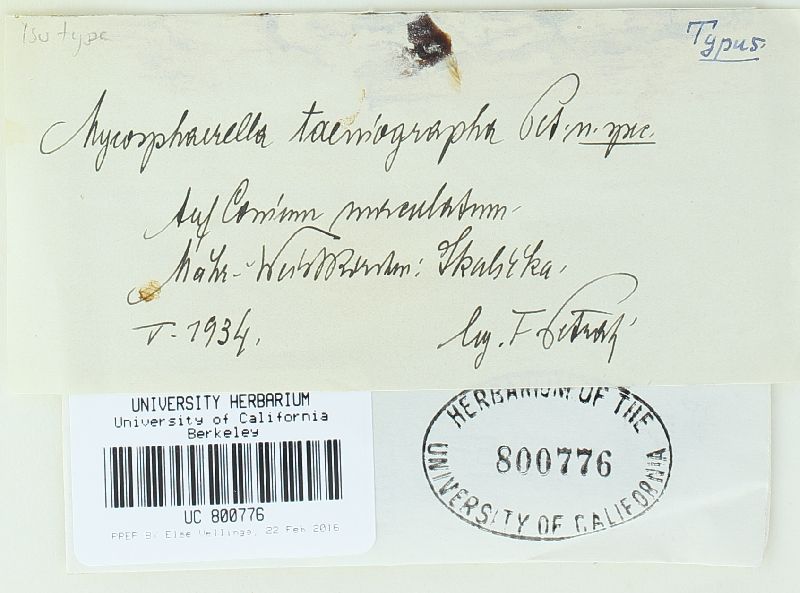 Isotype
Typus.
Mycosphaerella taeniographa Pet. n. spec.
Auf Conium maculatum.
Mähr.-Weisskirchen: Skalička.
V. 1934. leg. F. Petrak
UNIVERSITY HERBARIUM
University of California
Berkeley
UC 800776
PREP BY Else Vellinga, 22 Feb 2016
HERBARIUM OF THE
800776
UNIVERSITY OF CALIFORNIA